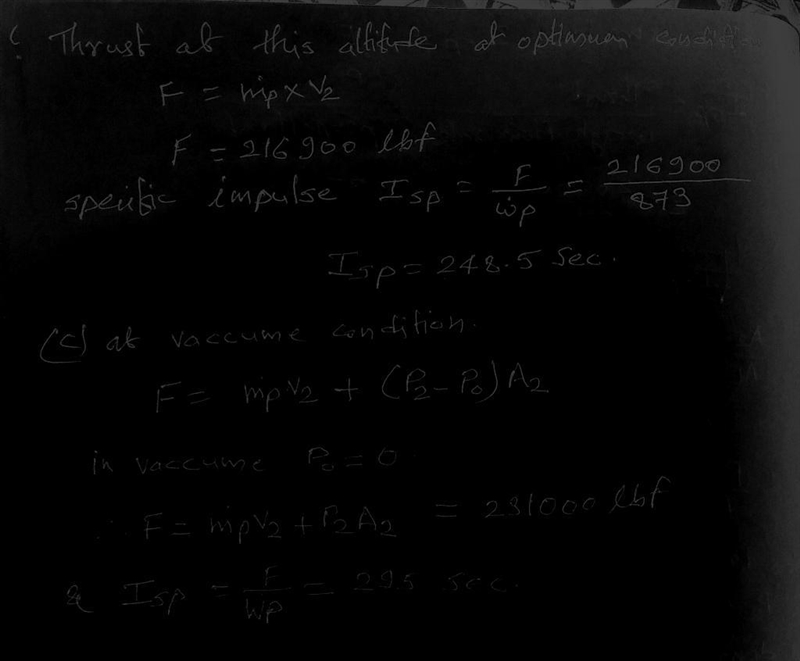 Thrust at this altitude at optimum condition
F = ṁp x V₂
F = 216900 lbf
specific impulse Isp = F/ẇp = 216900/873
Isp = 248.5 Sec.
(c) at vaccume condition.
F = ṁpV₂ + (P₂ – P₀)A₂
in vaccume P₀ = 0
∴ F = ṁpV₂ + P₂A₂ = 231000 lbf
& Isp = F/Wp = sec.